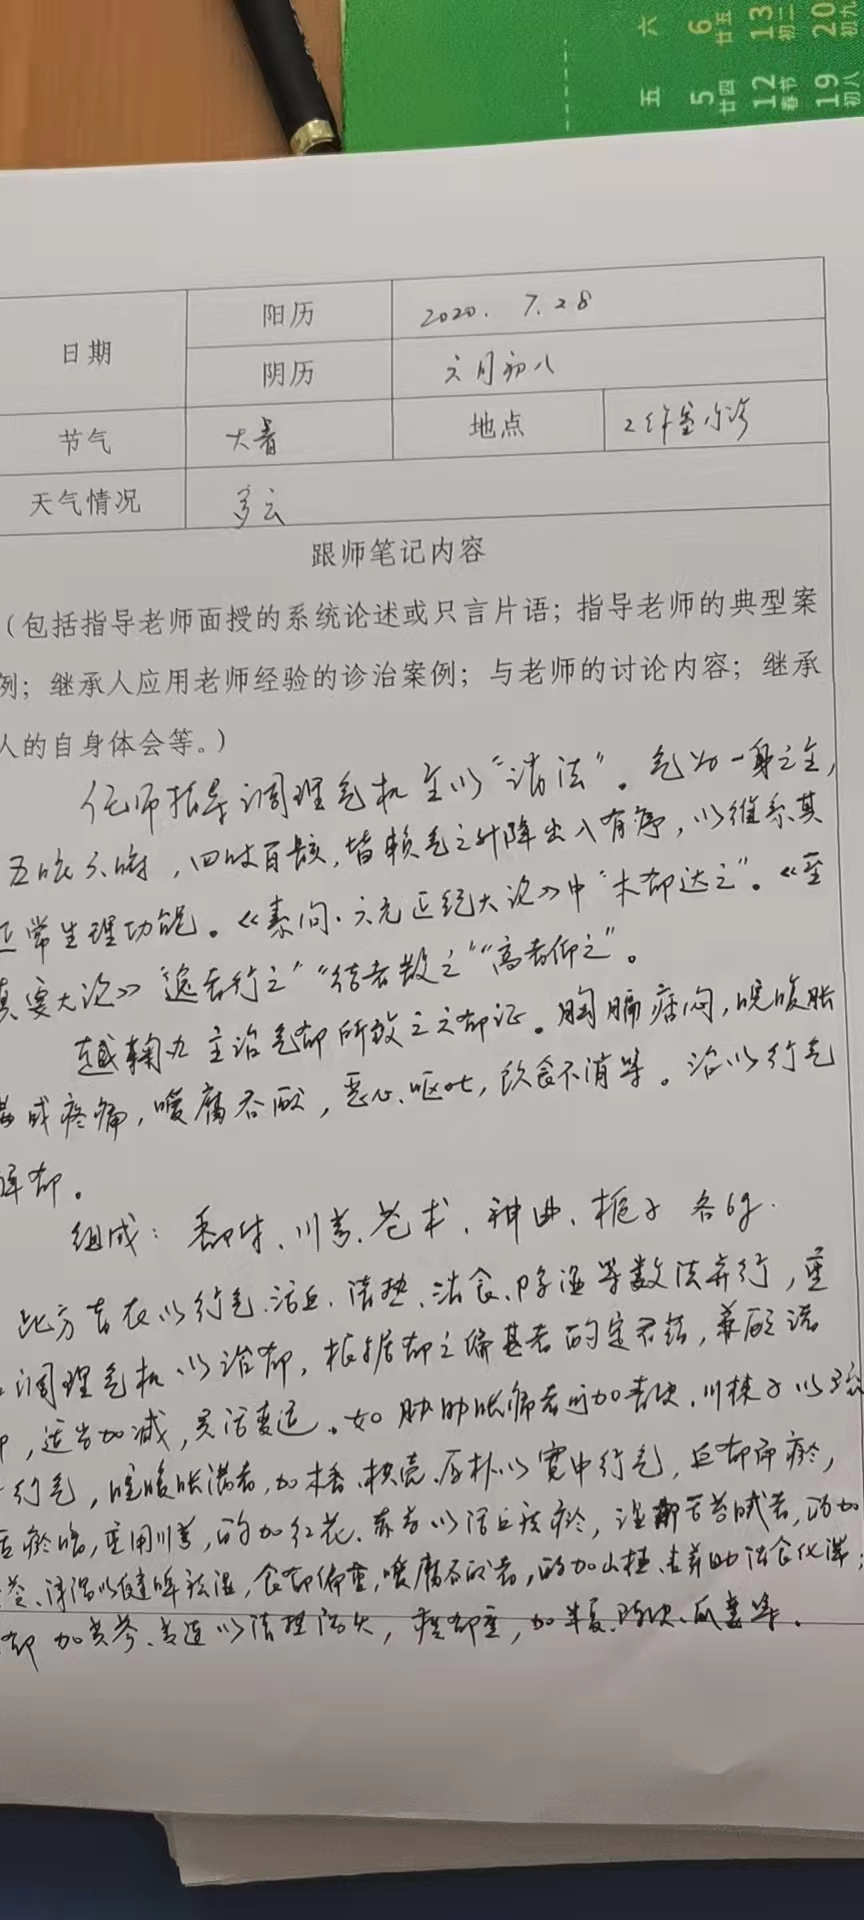 六 6 廿五 13 初二 20 初九
五 5 廿四 12 春节 19 初八
日期 阳历 2020. 7. 28
阴历 六月初八
节气 大暑 地点 工作室门诊
天气情况 多云
跟师笔记内容
（包括指导老师面授的系统论述或只言片语；指导老师的典型案
例；继承人应用老师经验的诊治案例；与老师的讨论内容；继承
人的自身体会等。）
任师指导调理气机主以“消法”。气为一身之主，
五脏六腑，四肢百骸，皆赖气之升降出入有序，以维系其
正常生理功能。《素问·六元正纪大论》中“木郁达之”。《至
真要大论》“逸者行之”“结者散之”“高者抑之”。
越鞠丸主治气郁所致之六郁证。胸膈痞闷，脘腹胀
或疼痛，嗳腐吞酸，恶心、呕吐，饮食不消等。治以行气
解郁。
组成：香附、川芎、苍术、神曲、栀子 各6g.
此方旨在以行气、活血、清热、消食、除湿等数法并行，重
调理气机以治郁，根据郁之偏甚者酌定君药，兼顾诸
，适当加减，灵活变通。如胁肋胀痛者可加青皮、川楝子以疏
行气，脘腹胀满者，加木香、枳壳、厚朴以宽中行气，血郁即瘀，
瘀，重用川芎，酌加红花、赤芍以活血祛瘀，湿郁苔腻者，酌加
、泽泻以健脾祛湿，食郁偏重，嗳腐吞酸者，酌加山楂、麦芽助消食化滞；
郁加黄芩、黄连以清热泻火，痰郁重，加半夏、陈皮、瓜蒌等.